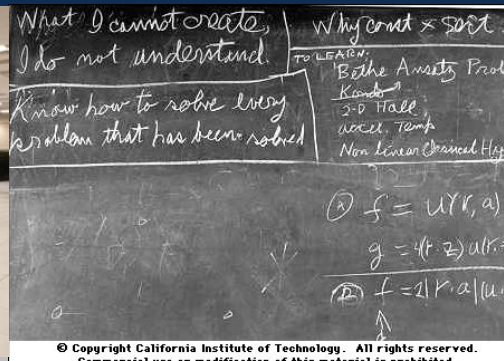 What I cannot create,
I do not understand.
Know how to solve every
problem that has been solved
Why const × sort
TO LEARN:
Bethe Ansatz Prob
Kondo
2-D Hall
accel. Temp
Non linear Classical Hy
f = u(r, a)
g = 4(r·z) u(r.
f = 2|r.a|(u.
© Copyright California Institute of Technology. All rights reserved.
Commercial use or modification of this material is prohibited.